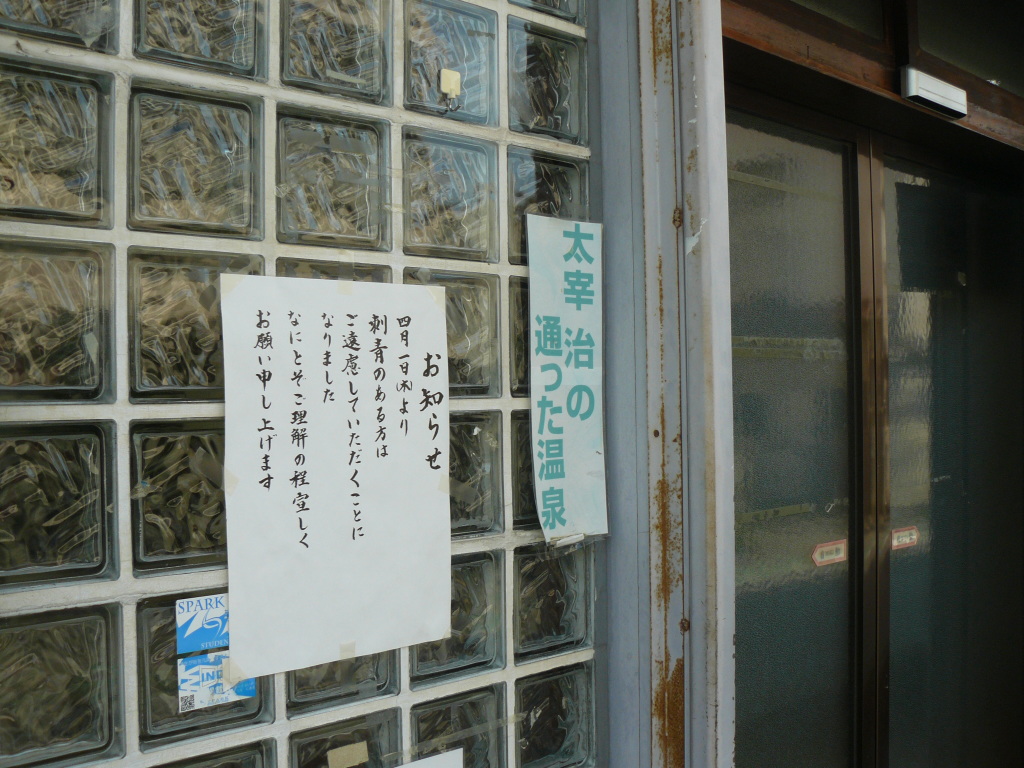 お知らせ
四月一日(水)より
刺青のある方は
ご遠慮していただくことに
なりました
なにとぞご理解の程宜しく
お願い申し上げます
太宰治の
通った温泉
SPARK